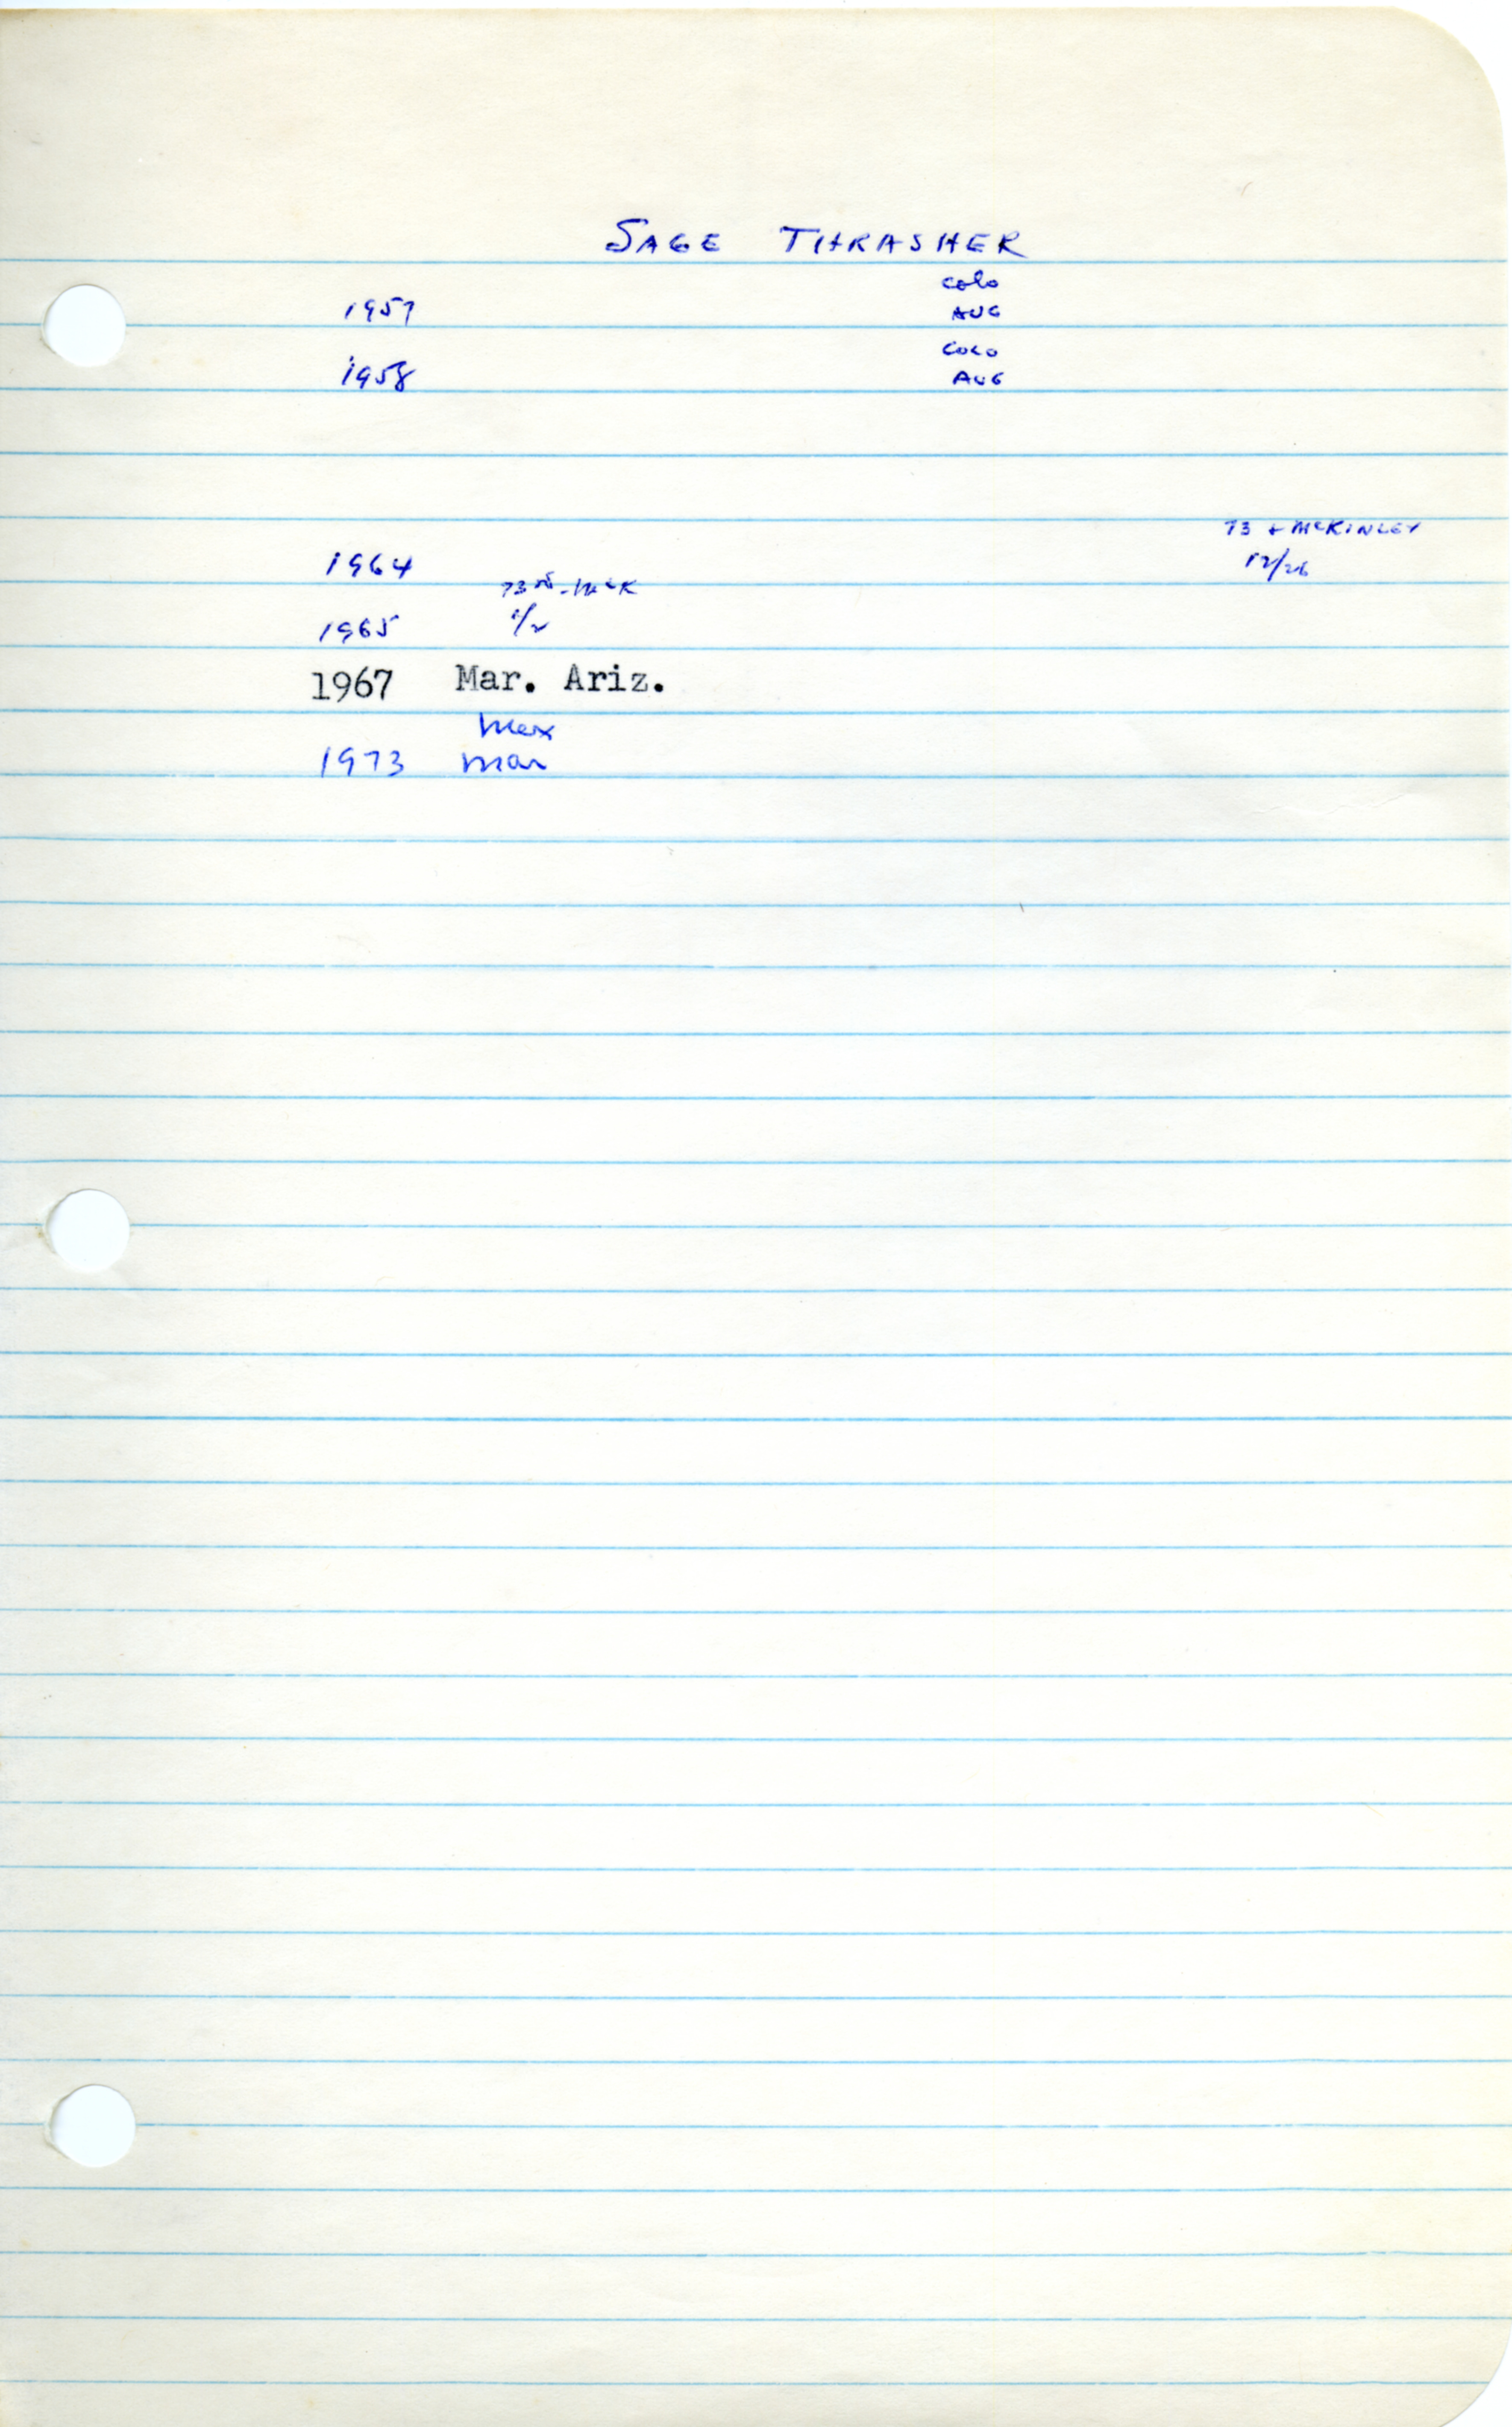 SAGE THRASHER
Colo
1957 AUG
COLO
1958 AUG
73 + McKINLEY
1964 12/26
73rd - McK
1965 1/2
1967 Mar. Ariz.
Mex
1973 Mar